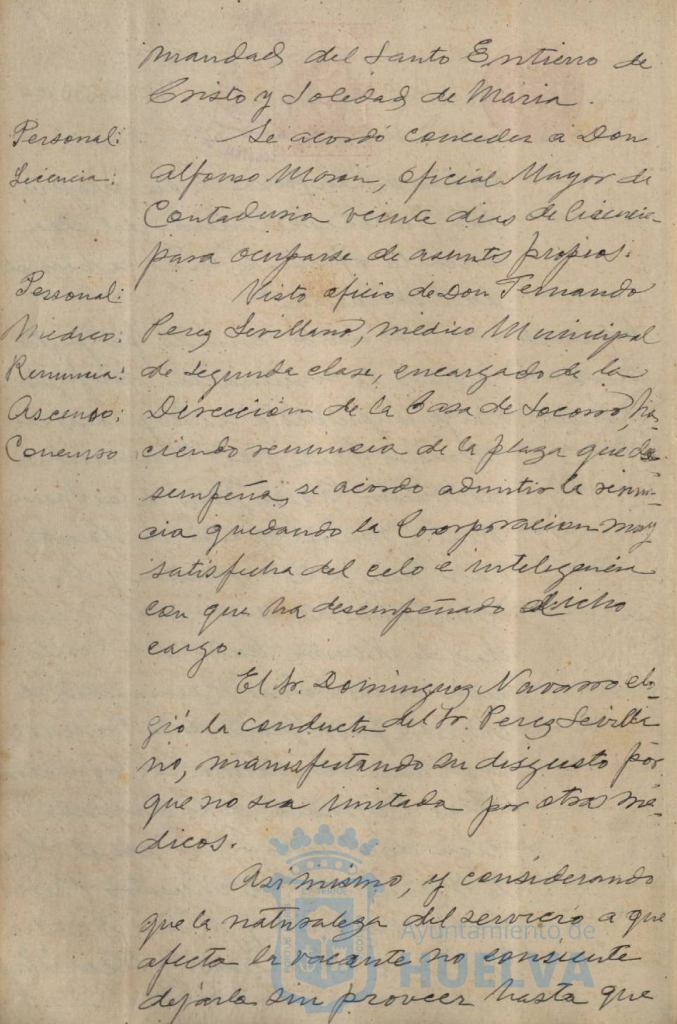 mandad del Santo Entierro de
Cristo y Soledad de Maria.
Personal:
Licencia:
Se acordó conceder a Don
Alfonso Morón, oficial Mayor de
Contaduria veinte dias de licencia
para ocuparse de asuntos propios.
Personal:
Medico:
Renuncia:
Ascenso:
Concurso
Visto oficio de Don Fernando
Perez Sevillano, médico Municipal
de segunda clase, encargado de la
Dirección de la Casa de Socorro, ha-
ciendo renuncia de la plaza que de-
sempeña, se acordo admitir la renun-
cia quedando la Corporacion muy
satisfecha del celo e inteligencia
con que ha desempeñado dicho
cargo.
El Sr. Dominguez Navarro elo-
gió la conducta del Sr. Perez Sevilla
no, manisfestando su disgusto por
que no sea imitada por otros mé-
dicos.
Asi mismo, y considerando
que la naturaleza del servicio a que
afecta la vacante no consiente
dejarla sin proveer hasta que
Ayuntamiento de
HUELVA